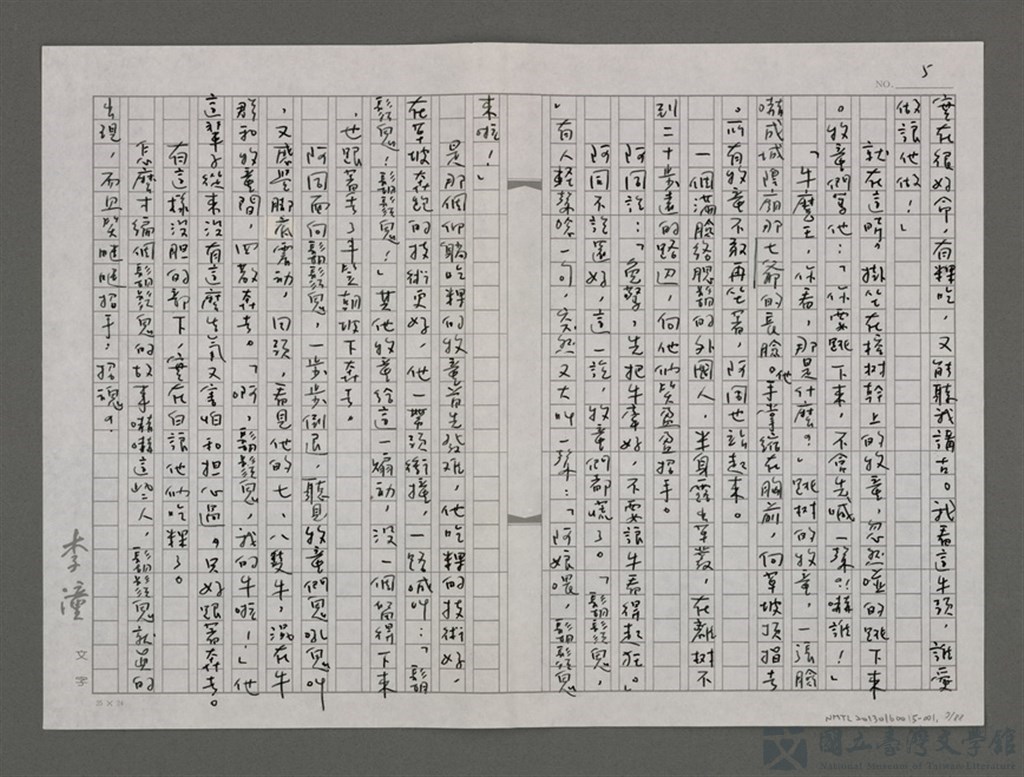 5
NO.
實在很好命，有粿吃，又能聽我講古。我看這牛頭，誰愛
做讓他做！」
就在這時，掛坐在榕樹幹上的牧童，忽然碰的跳下來
。牧童們罵他：「你要跳下來，不會先喊一聲？！嚇誰！」
「牛魔王，你看，那是什麼？」跳樹的牧童，一張臉
嚇成城隍廟那七爺的長臉。他手掌縮在胸前，向草坡頂指去
。所有牧童不敢再坐著，阿同也站起來。
一個滿臉絡腮鬍的外國人，半身露出草叢，在離樹不
到二十步遠的路邊，向他們笑盈盈招手。
阿同說：「免驚，先把牛牽好，不要讓牛看得起狂。」
阿同不說還好，這一說，牧童們都慌了。「鬍鬚鬼，
。有人輕聲唸一句，突然又大叫一聲：「阿娘喂，鬍鬚鬼
來啦！」
是那個仰躺吃粿的牧童首先發難，他吃粿的技術好，
在草坡奔跑的技術更好，他一帶頭衝撞，一路喊叫：「鬍
鬚鬼！鬍鬚鬼！」其他牧童給這一煽動，沒一個留得下來
，也跟著去了半坡朝坡下奔去。
阿同面向鬍鬚鬼，一步步倒退，聽見牧童們鬼吼鬼叫
，又感覺腳底震動，回頭，看見他的七、八隻牛，混在牛
群和牧童間，四散奔去。「啊，鬍鬚鬼，我的牛啦！」他
這輩子從來沒有這麼生氣又害怕和擔心過，只好跟著奔去。
有這樣沒胆的部下，實在白讓他們吃粿了。
怎麼才編個鬍鬚鬼的故事嚇嚇這些人，鬍鬚鬼就真的
出現，而且笑瞇瞇招手；招魂？
李潼
文字
25×24
NMTL20130160015-001, 7/88
國立臺灣文學館
National Museum of Taiwan Literature